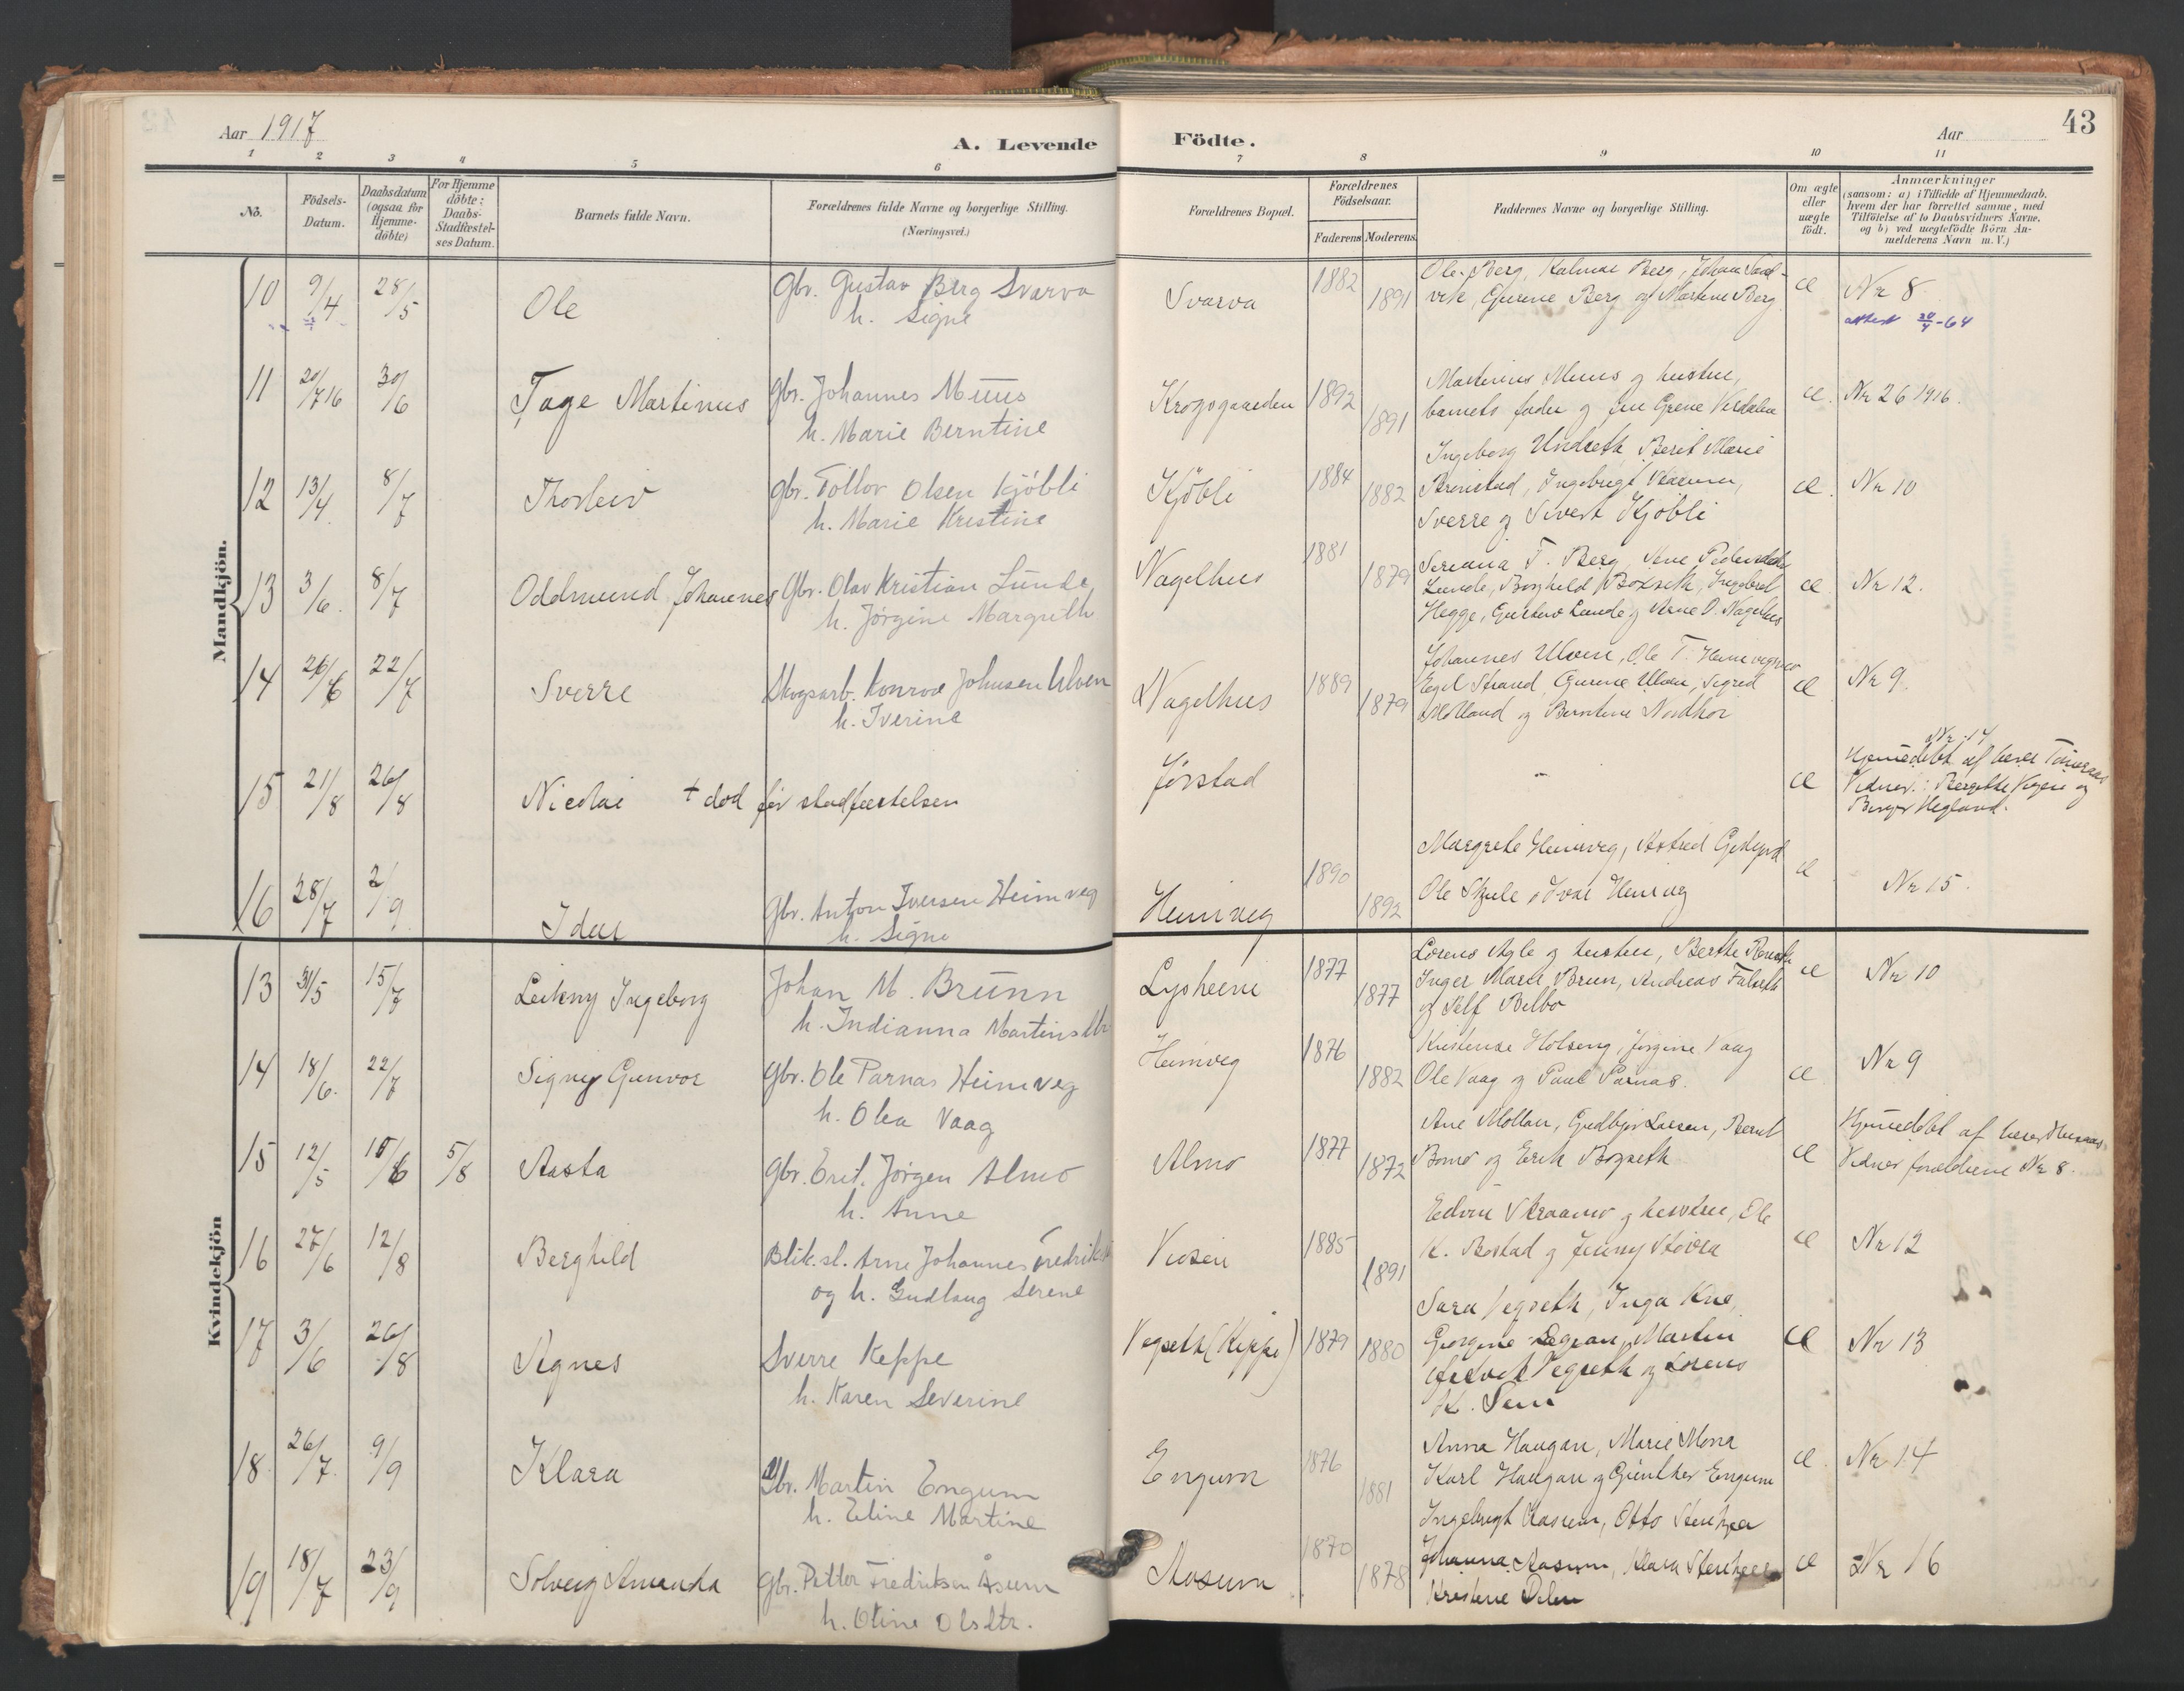 Aar 1917
A. Levende
Födte.
Aar
43
1 2 3 4 5 6 7 8 9 10 11
No.
Födsels-Datum.
Daabsdatum (ogsaa for Hjemme-döbte)
For Hjemme döbte: Daabs-Stadfæstel-ses Datum.
Barnets fulde Navn.
Forældrenes fulde Navne og borgerlige Stilling.
(Næringsvei.)
Forældrenes Bopæl.
Forældrenes Födselsaar.
Faderens Moderens
Faddernes Navne og borgerlige Stilling.
Om ægte eller uægte födt.
Anmærkninger
(saasom: a) i Tilfælde af Hjemmedaab,
hvem der har forrettet samme, med
Tilföielse af to Daabsvidners Navne.
og b) ved uægtefödte Börn An-
melderens Navn m. V.)
Mandkjön.
10 9/4 28/5 Ole
Gbr. Gustav Berg Svarva
h. Signe
Svarva 1882 1891
Ole Berg, Kalmar Berg, Johan Sand-
vik, Gurine Berg og Martine Berg
Nr 8
attest 24/4-64
11 20/7 16 30/6 Tage Martinus
Gbr. Johannes Muus
h. Marie Berntine
Krogsgaarden 1892 1891
Martinus Muus og hustru,
barnets fader og fru Grene Verdalen
Nr 26 1916.
12 13/4 8/7 Thorleiv
Gbr. Tollov Olsen Kjöbli
h. Marie Kristine
Kjöbli 1884 1882
Ingeborg Undseth, Berit Marie
Ingebrigt
Sverre og Sivert Kjöbli
Nr 10
13 3/6. 8/7 Oddmund Johannes
Gbr. Olav Kristian Lunde
h. Jørgine Margreth
Nagelhus 1881 1879
Sereana T. Berg, Ane Pedersdtr
Lunde, Borghild
Hegge, Gustav Lunde og Arne O. Nagelhus
Nr 12.
14 26/6 22/7 Sverre
Skogsarb. Konrad Johnsen Ulven
h. Iverine
Nagelhus 1889 1879
Johannes Ulven, Ole T. Heimvegsmo
Egil Strand, Gurine Ulven, Sigrid
Molland og Berntine Nordhor
Nr 9.
15 21/8 26/8 Nicolai + död før stadfæstelsen
Jörstad
Nr 17
Hjemmedøbt af lærer
Vidner: Bergitte og
Birger Hegland.
16 28/7 2/9 Idar
Gbr. Anton Iversen Heimveg
h. Signe
Heimveg 1890 1892
Margrete Heimveg, Astrid
Ole Skjele, Ivar Heimveg
Nr 15.
Kvindekjön
13 31/5 15/7 Leikny Ingeborg
Johan M. Brünn
h. Indianna Martinsdtr
Lysheim 1877 1877
Lorens Agle og hustru, Berthe
Inger Marie Brun, Andreas Falseth
og Belbo
Nr 10
14 18/6. 22/7 Signy Gunvor
Gbr. Ole Parnas Heimveg
h. Olea Vaag
Heimveg 1876 1882
Kristense Holseng, Jørgine Vaag
Ole Vaag og Paul Parnas.
Nr 9
15 12/5 10/6 5/8 Aasta
Gbr. Erit. Jørgen Almo
h. Anne
Almo 1877 1872
Ane Mollan, Gudbjør Larsen, Bernt
Bomo og Erik Bogseth
Hjemmedøbt af lærer
Vidner forældrene Nr 8.
16 27/6 12/8 Berghild
Blik.sl. Arne Johannes Fredriks
og h. Gudlaug Serene
1885 1891
Edvin og hustru, Ole
K. Bostad og Jenny
Nr 12
17 3/6 26/8 Agnes
Sverre Keppe
h. Karen Severine
Vegseth (Keppe) 1879 1880
Sara Vegseth, Inga
Georgine Martin
Vegseth og Lorens
K. Sem
Nr 13
18 26/7. 9/9 Klara
Gbr. Martin Engum
h. Eline Martine
Engum 1876 1881
Anna Haugan, Marie Mona
Karl Haugan og Günther Engum
Nr 14
19 18/7 23/9 Solveig Amanda
Gbr. Petter Fredriksen Åsum
h. Oline Olsdtr.
Aasum 1870 1878
Ingebrigt Aasum, Otto Steinkjer
Johanna Aasum, Klara Steinkjer
Kristine
Nr 16